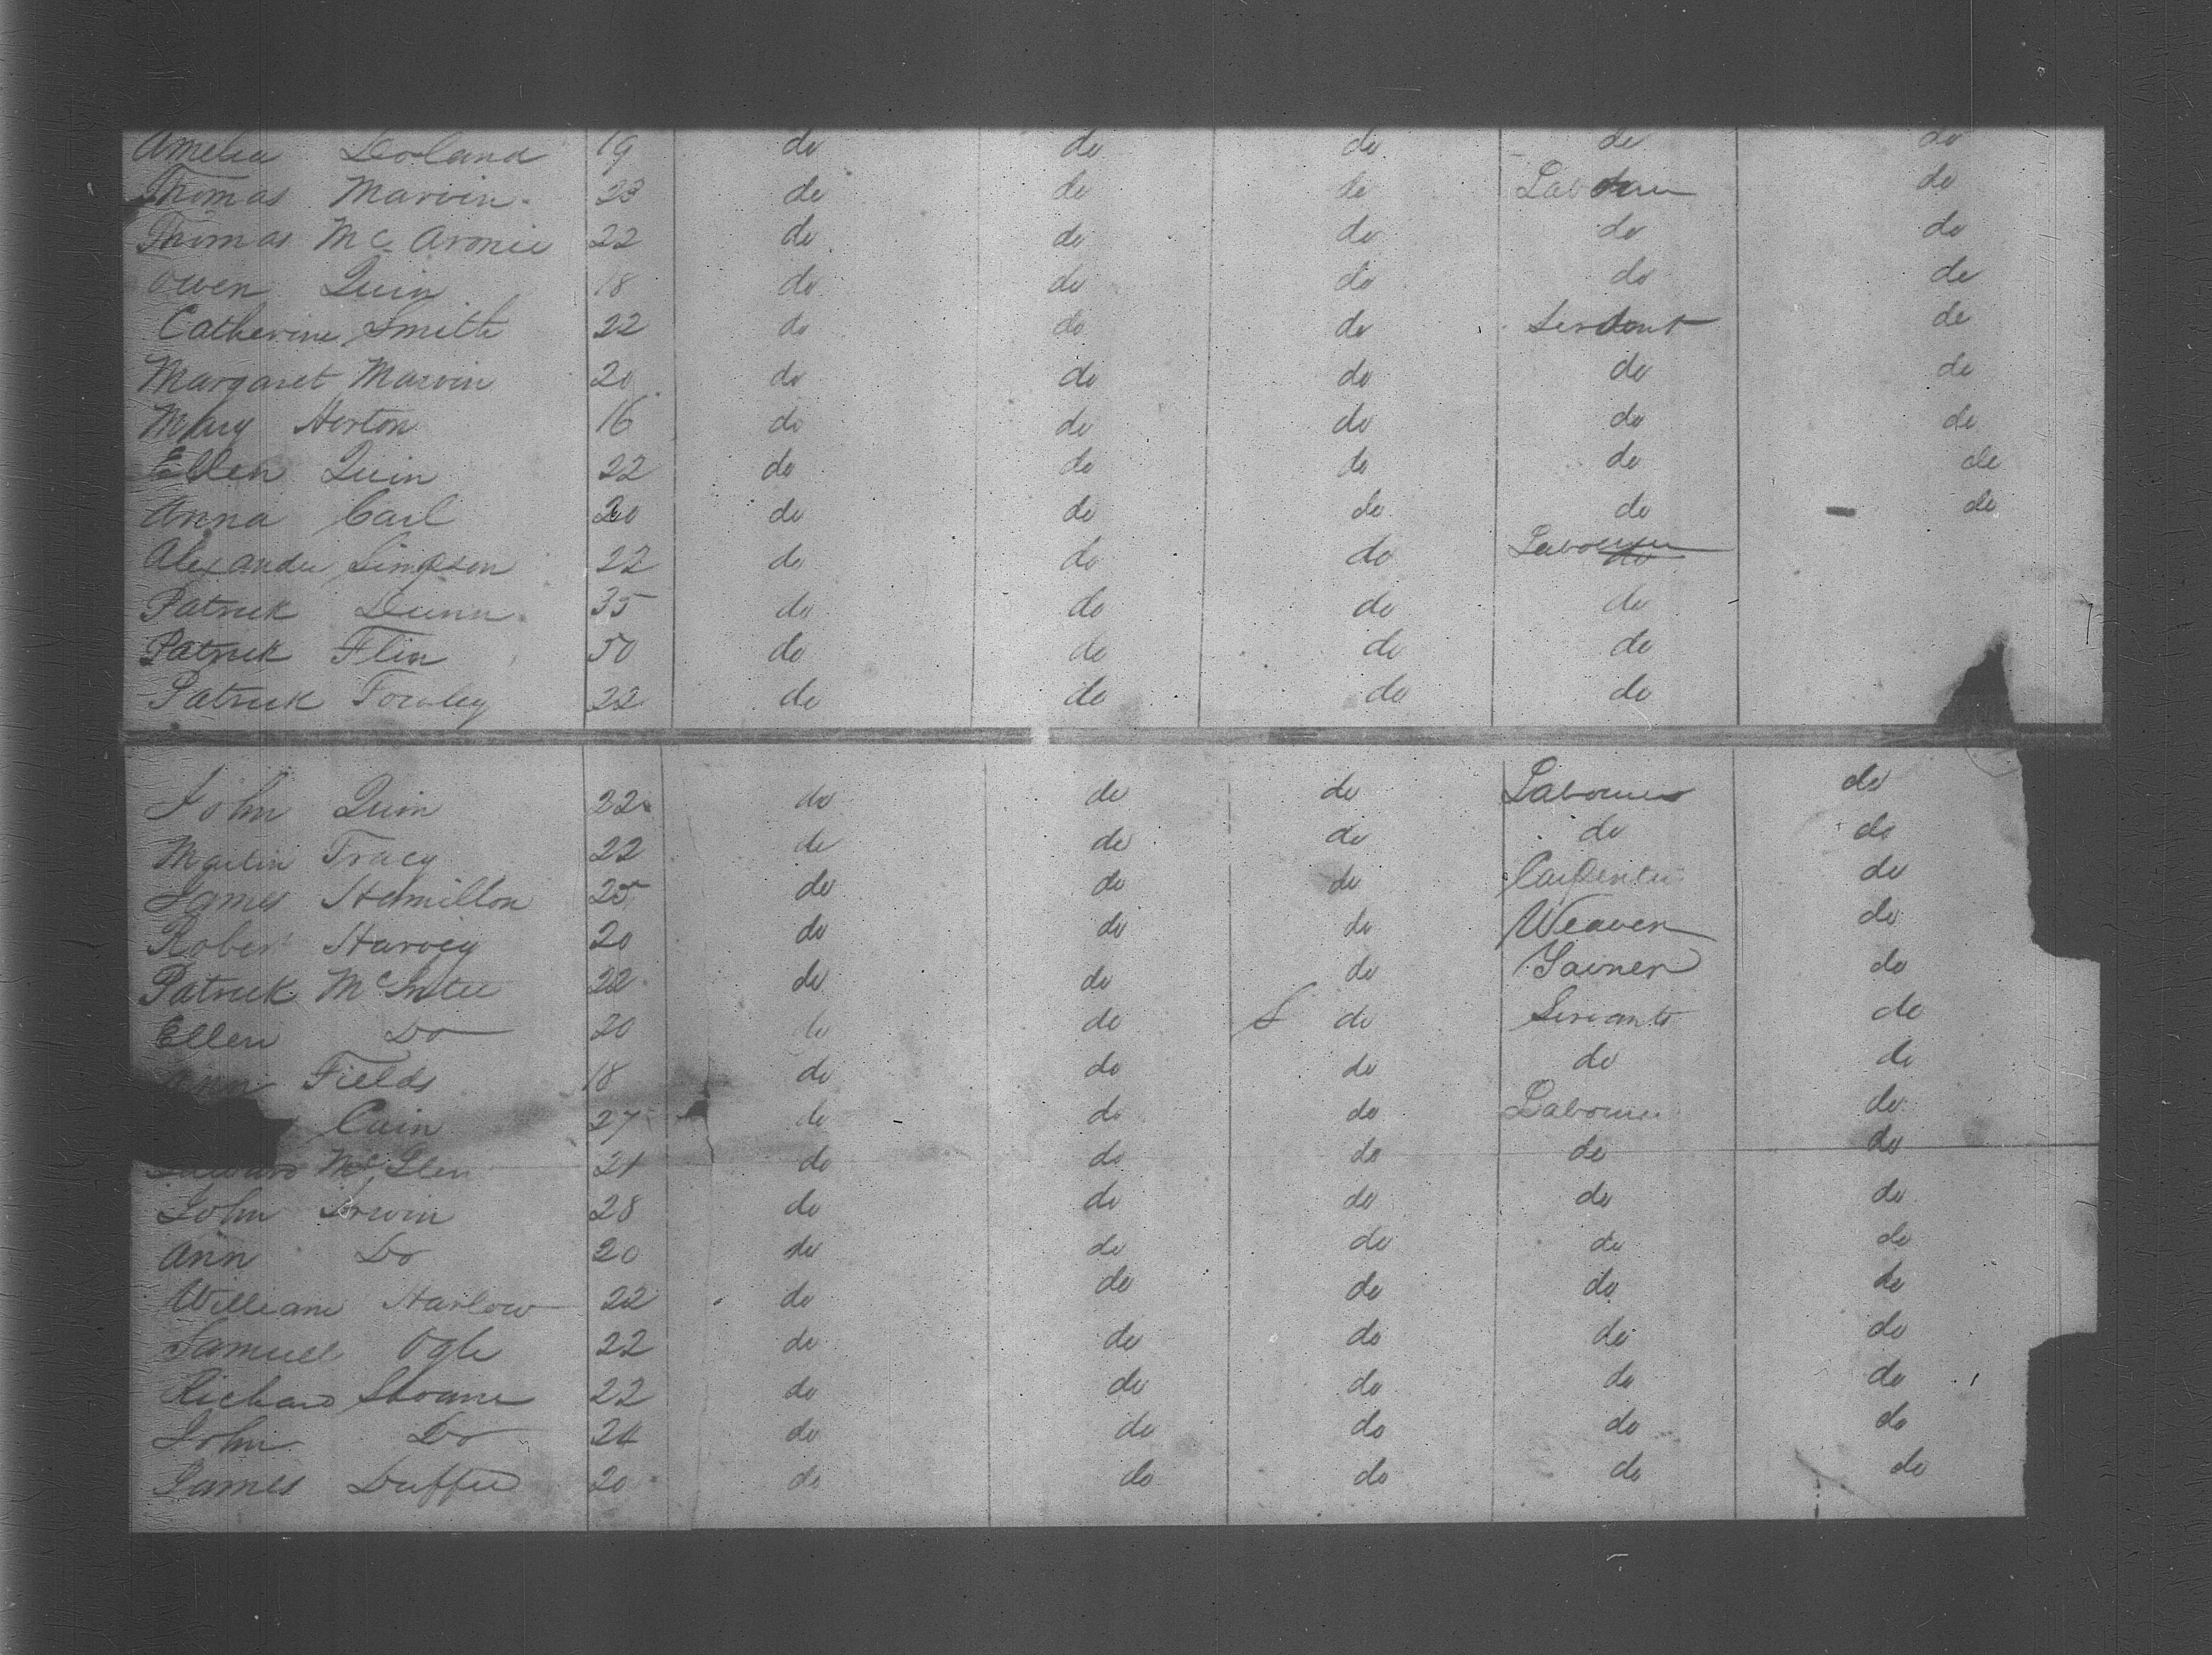 Amelia Boland 19 do do do do do
Thomas Marvin 23 do do do Labourer do
Thomas McAronie 22 do do do do do
Owen Quin 18 do do do do do
Catherine Smith 22 do do do Servant do
Margaret Marvin 20 do do do do do
Mary Horton 16 do do do do do
Ellen Quin 22 do do do do do
Anna Carl 20 do do do do do
Alexander Simpson 22 do do do Labourer do
Patrick Dunn 35 do do do do
Patrick Flin 50 do do do do
Patrick Towley 22 do do do do
John Quin 22 do do do Labourer do
Tracy 22 do do do do do
James Hamilton 25 do do do Carpenter do
Robert Harvey 20 do do do Weaver do
Patrick McIntee 22 do do do Joiner do
Ellen Do 20 do do do Servants do
Ann Fields 18 do do do do do
Cain 27 do do do Labourer do
Edward McGlen 21 do do do do do
John Irwin 28 do do do do do
Ann Do 20 do do do do do
William Harlow 22 do do do do do
Samuel Ogle 22 do do do do do
Richard Sloane 22 do do do do do
John Do 24 do do do do do
James Duffie 20 do do do do do